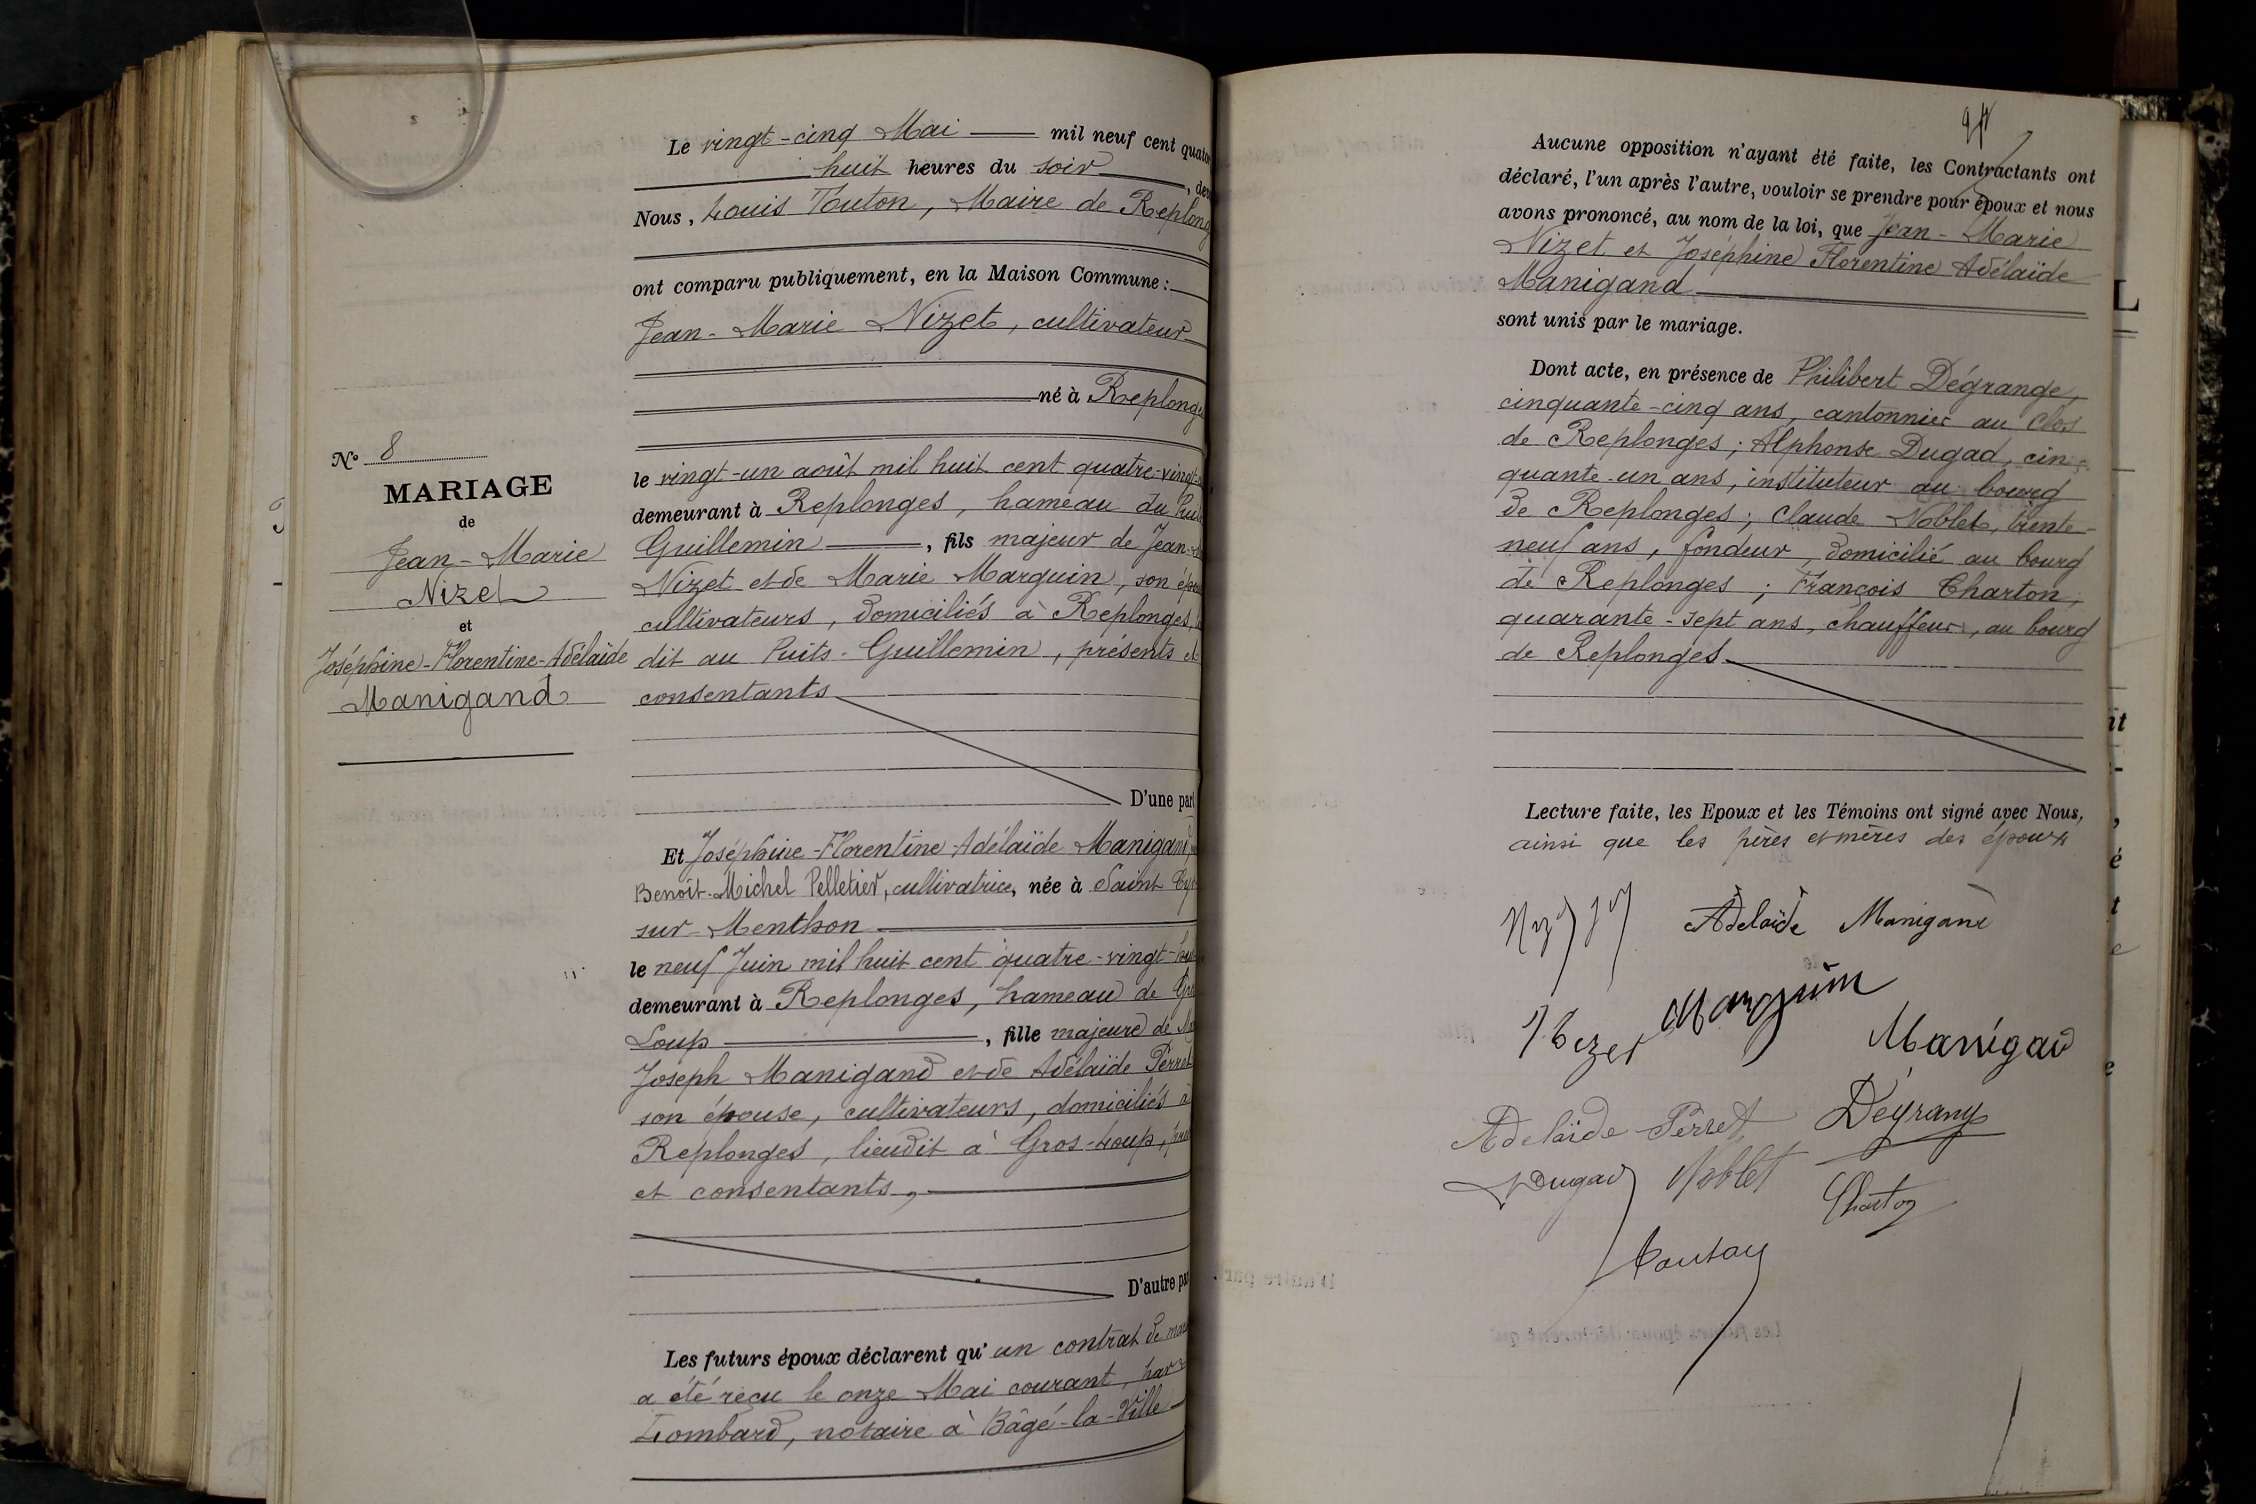 Le vingt-cinq Mai mil neuf cent
huit heures du soir
Nous, Louis Touton, Maire de
ont comparu publiquement, en la Maison Commune :
Jean-Marie Nizet, cultivateur
né à
le vingt-un août mil huit cent
demeurant à Replonges, hameau du
Guillemin, fils majeur de
Nizet et de Marie Marguin, son
cultivateurs, domiciliés à Replonges,
dit au Puits-Guillemin, présents et
consentants
D'une part
N° 8
MARIAGE
de
Jean-Marie
Nizet
et
Joséphine-Florentine-Adélaïde
Manigand
Et Joséphine-Florentine-Adélaïde Manigand,
Benoît-Michel Pelletier, cultivatrice, née à Saint
sur Menthon
le neuf Juin mil huit cent
demeurant à Replonges, hameau de
Loup, fille majeure de
Joseph Manigand et de Adélaïde Perret
son épouse, cultivateurs, domiciliés à
Replonges, lieudit à Gros-Loup,
et consentants,
D'autre
Les futurs époux déclarent qu'un contrat de
a été reçu le onze Mai courant, par
Lombard, notaire à Bâgé-la-Ville
Aucune opposition n'ayant été faite, les Contractants ont
déclaré, l'un après l'autre, vouloir se prendre pour époux et nous
avons prononcé, au nom de la loi, que Jean-Marie
Nizet et Joséphine Florentine Adélaïde
Manigand
sont unis par le mariage.
Dont acte, en présence de Philibert Dégrange,
cinquante-cinq ans, cantonnier au Clos
de Replonges ; Alphonse Dugad, cin
quante-un ans, instituteur au bourg
de Replonges ; Claude Noblet, trente-
neuf ans, fondeur, domicilié au bourg
de Replonges ; François Charton,
quarante-sept ans, chauffeur, au bourg
de Replonges
Lecture faite, les Epoux et les Témoins ont signé avec Nous,
ainsi que les pères et mères des époux
Adelaïde Manigand
Marguin
Manigand
Adelaïde Perret
Dugad Noblet
Charton
Touton